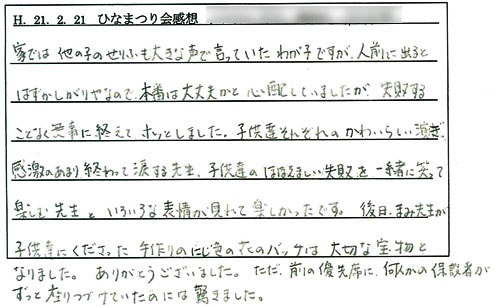 H. 21. 2. 21 ひなまつり会感想
家では 他の子のせりふも大きな声で言っていた わが子ですが、人前に出ると
はずかしがりやなので、本番は大丈夫かと 心配していましたが、失敗する
ことなく無事に終えて、ホッとしました。子供達それぞれの かわいらしい演技、
感激のあまり 終わって涙する先生、子供達の ほほえましい失敗を 一緒に笑って
楽しむ先生と いろいろな表情が見れて 楽しかったです。 後日、まみ先生が
子供達にくださった 手作りのにじ色の花のバッチは 大切な宝物と
なりました。 ありがとうございました。 ただ、前の優先席に、何人かの保護者が
ずっと座りつづけていたのには 驚きました。